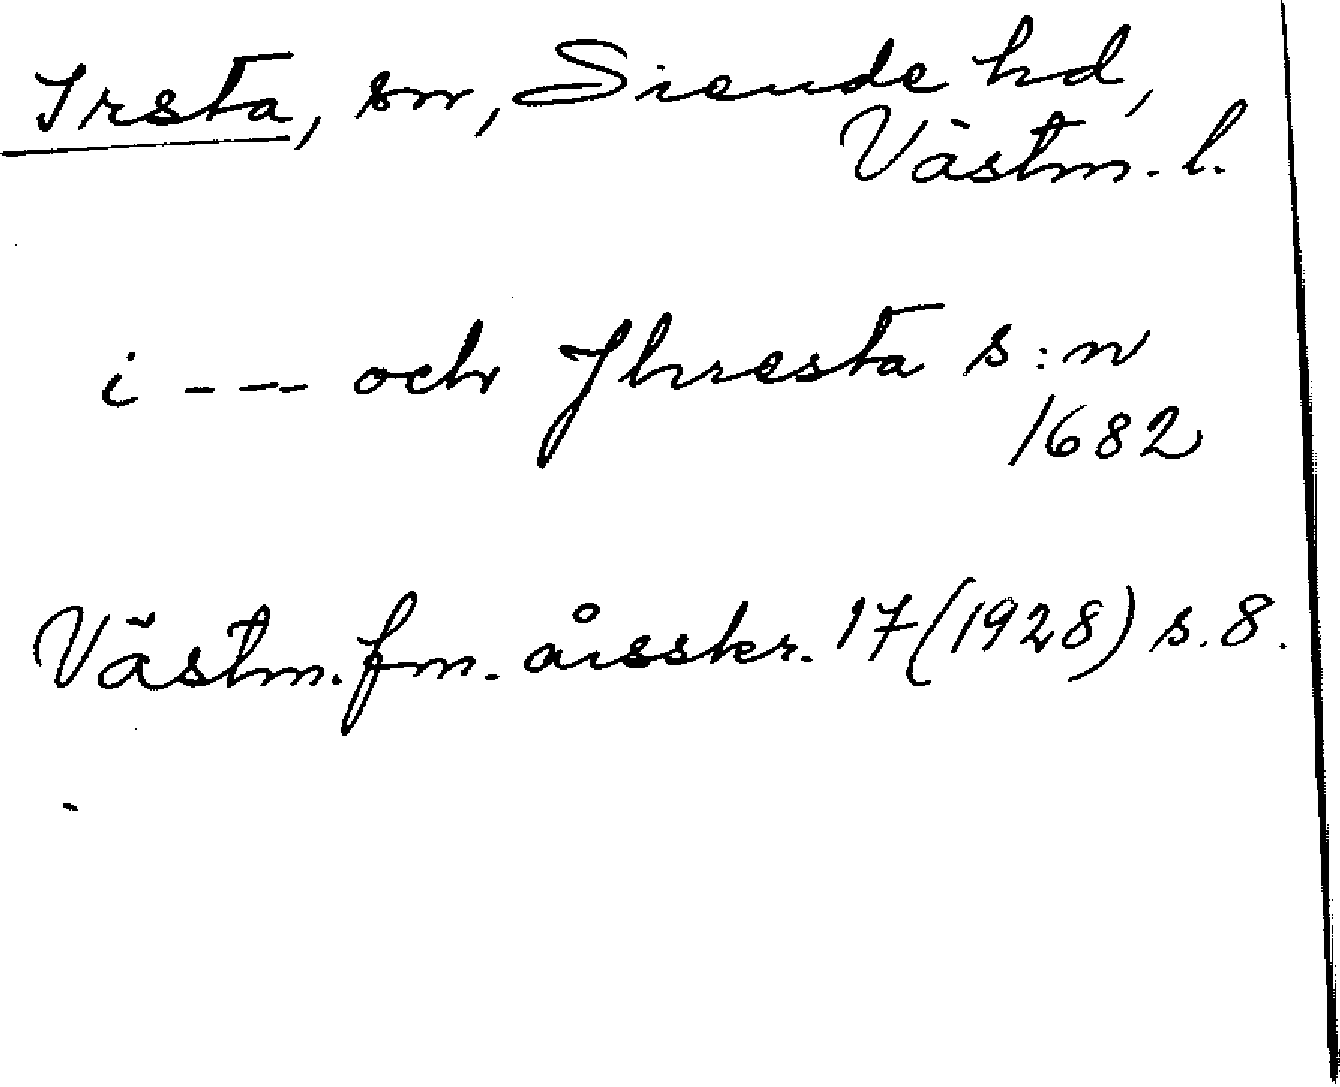 Irsta, sn, Siende hd,
Västm. l.
i --- och Jhresta s:n
1682
Västm. fm. årsskr. 17 (1928) s. 8.